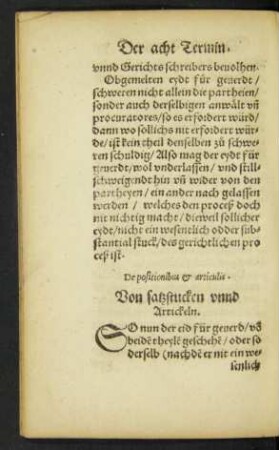 Der acht Termin.
vnnd Gerichts schreibers beuolhen.
Obgemelten eydt für geuerdt/
schweren nicht allein die partheien/
sonder auch derselbigen anwält vñ
procuratores/so es erfordert würd/
dann wo sollichs nit erfordert wür-
de/ist kein theil denselben zů schwe-
ren schuldig/Also mag der eydt für
geuerdt/wol vnderlassen/vnd still-
schweigendt hin vñ wider von den
partheyen/ein ander nach gelassen
werden/welches den proceß doch
nit nichtig macht/dieweil sollicher
eydt/nicht ein wesentlich odder sub-
stantial stuck/des gerichtlichen pro
ceß ist.
De positionibus & articulis.
Von satzstucken vnnd
Artickeln.
SO nun der eid für geuerd/võ
beidẽ theylẽ geschehẽ/oder so
derselb (nachdẽ er nit ein we-
senlich